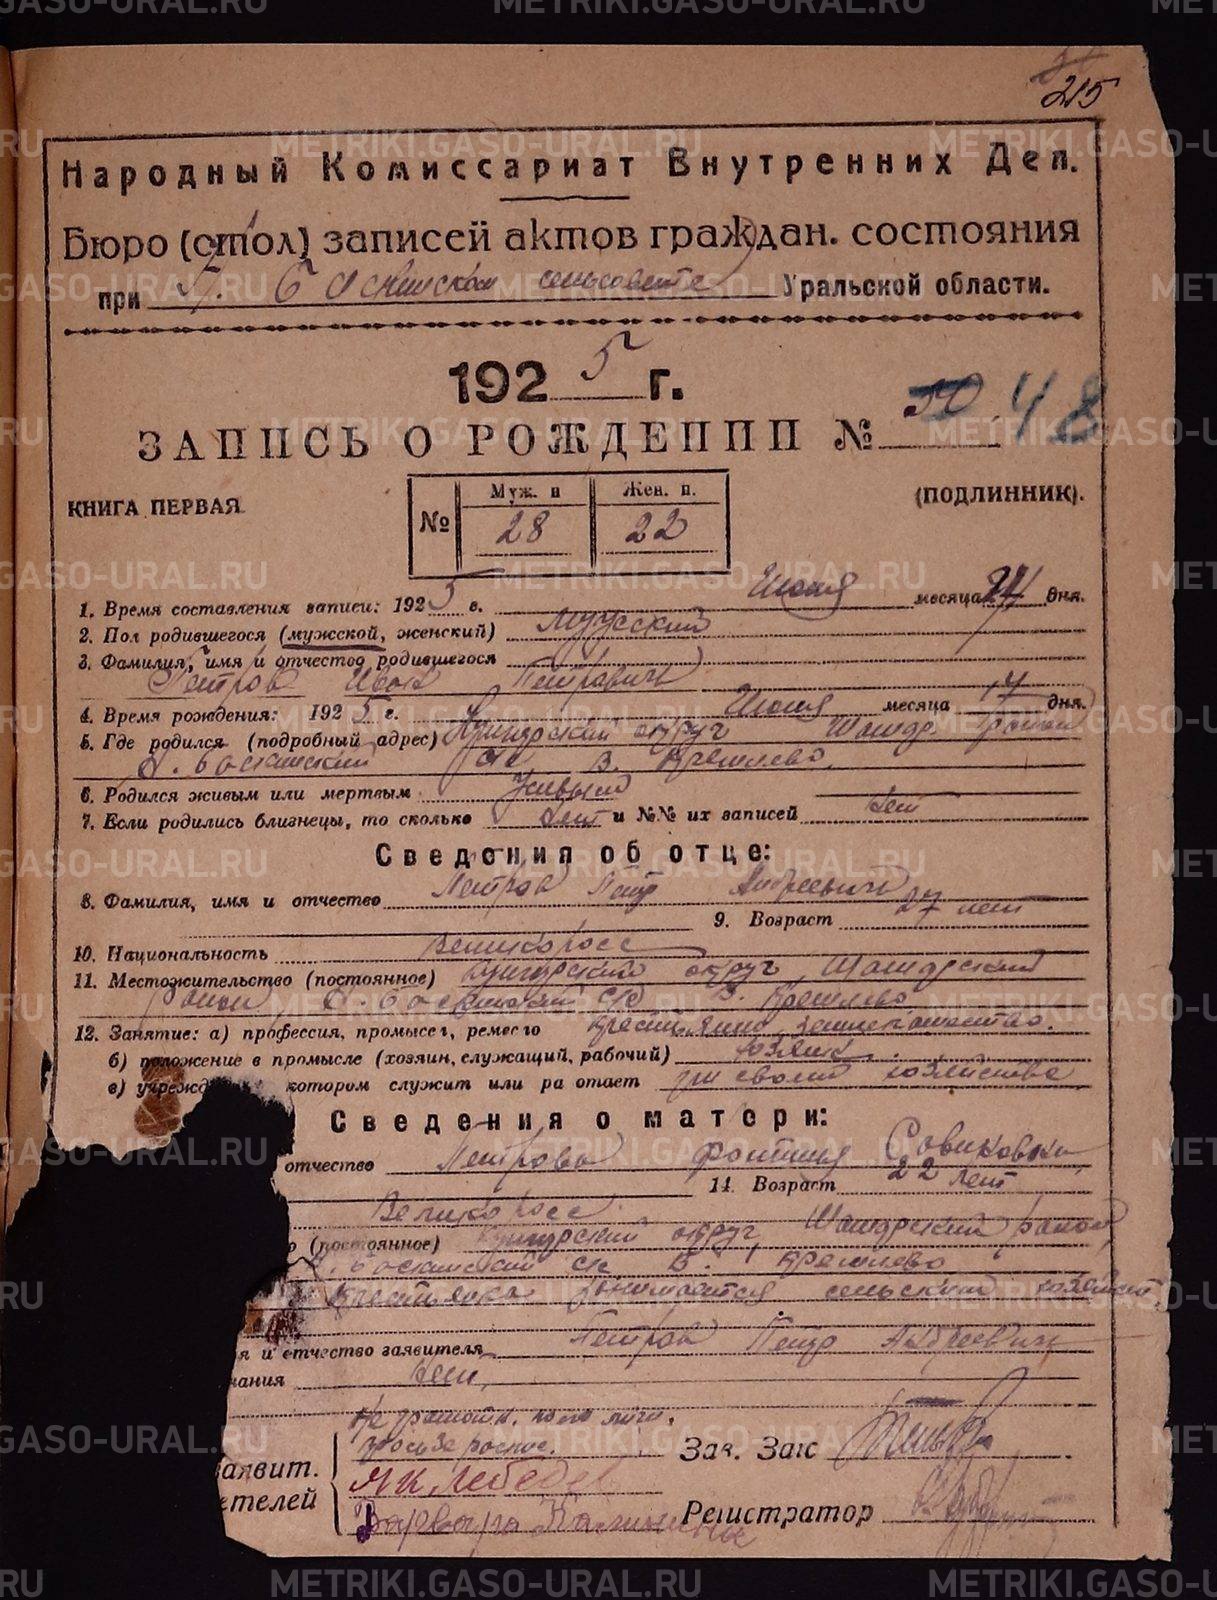 215
Народный Комиссариат Внутренних Дел.
Бюро (стол) записей актов граждан. состояния
при сельсовете Уральской области.
1925 г.
ЗАПИСЬ О РОЖДЕНИИ № 50 48
КНИГА ПЕРВАЯ (ПОДЛИННИК).
№ Муж. п 28 Жен. п. 22
1. Время составления записи: 1925 г. Июня месяца 24 дня.
2. Пол родившегося (мужской, женский) Мужский
3. Фамилия, имя и отчество родившегося
Петров Иван Петрович
4. Время рождения: 1925 г. Июня месяца 17 дня.
5. Где родился (подробный адрес) Кунгурский округ
В. Крешлево.
6. Родился живым или мертвым Живым
7. Если родились близнецы, то сколько Нет и №№ их записей Нет
Сведения об отце:
8. Фамилия, имя и отчество Петров Петр Андреевич
9. Возраст 27 лет
10. Национальность Великоросс
11. Местожительство (постоянное) Кунгурский округ,
В. Крешлево
12. Занятие: а) профессия, промысел, ремесло
б) положение в промысле (хозяин, служащий, рабочий) хозяин.
в) учрежд котором служит или ра отает при своем хозяйстве
Сведения о матери:
отчество Петрова
14. Возраст 22 лет
Великоросс
о (постоянное) Кунгурский округ,
с/с В. Крешлево
Крестьянка занимается сельским
я и отчество заявителя Петров Петр Андреевич
чания Нет,
Не грамотн.
аявит. просьбе роспис. Зав. Загс
етелей Лебедев
Варвара Регистратор
METRIKI.GASO-URAL.RU